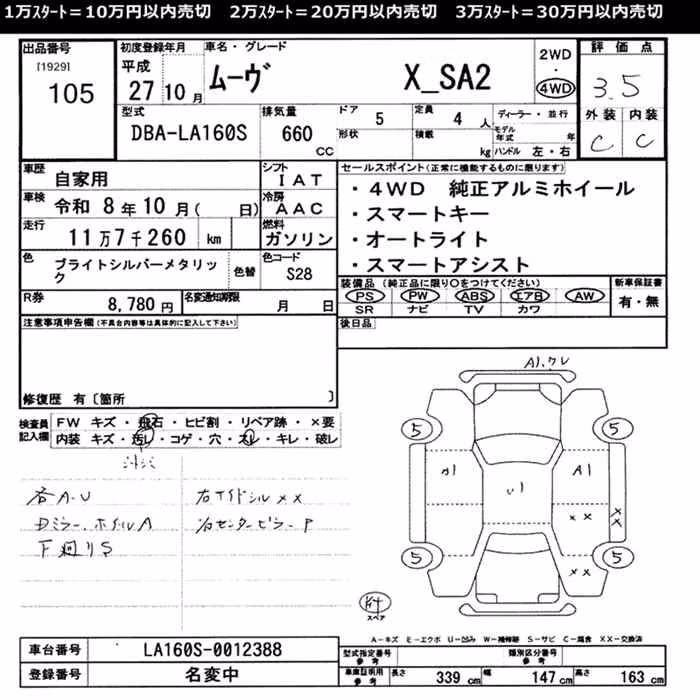 1万ｽﾀｰﾄ＝10万円以内売切　2万ｽﾀｰﾄ＝20万円以内売切　3万ｽﾀｰﾄ＝30万円以内売切
出品番号
[1929]
105
初度登録年月
平成
27 10 月
車名・グレード
ムーヴ X_SA2
2WD
・
4WD
評価点
3.5
外装 内装
C C
型式
DBA-LA160S
排気量
660
CC
ドア 5
形状
定員 4 人
積載 kg
ディーラー・並行
モデル年式 年
ハンドル 左・右
車歴
自家用
シフト
IAT
車検 令和 8年10月( 日)
冷房
AAC
走行 11万7千260 km
燃料
ガソリン
色 ブライトシルバーメタリック
色替
色コード
S28
R券 8,780円
名変通知期限 月 日
セールスポイント(正常に機能するものに限ります)
・4WD 純正アルミホイール
・スマートキー
・オートライト
・スマートアシスト
装備品 (純正品に限り○をつけてください)
PS PW ABS エアB AW
SR ナビ TV カワ
新車保証書
有・無
後日品
注意事項申告欄(不具合内容等は具体的に記入して下さい)
修復歴 有〔箇所 〕
検査員記入欄
FW キズ・飛石・ヒビ割・リペア跡・×要
内装 キズ・汚レ・コゲ・穴・スレ・キレ・破レ
各A-U
Dミラー、ホイルA
下廻りS
右サイドシル××
右センターピラーP
A1.クレ
5 5
A1
U1
××
××
5 5
××
スペア
A－キズ E－エクボ U－凹み W－補修跡 S－サビ C－腐食 XX－交換済
車台番号 LA160S-0012388
登録番号 名変中
型式指定番号
参考
類別区分番号
参考
車庫証明用
参考
長さ 339 cm 幅 147 cm 高さ 163 cm